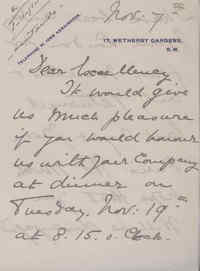 Nov. 7th
17, WETHERBY GARDENS,
S.W.
TELEPHONE No. KENSINGTON.
Dear Excellency
It would give
us much pleasure
if you would honour
us with your Company
at dinner on
Tuesday, Nov. 19th
at 8.15. o.Clock.